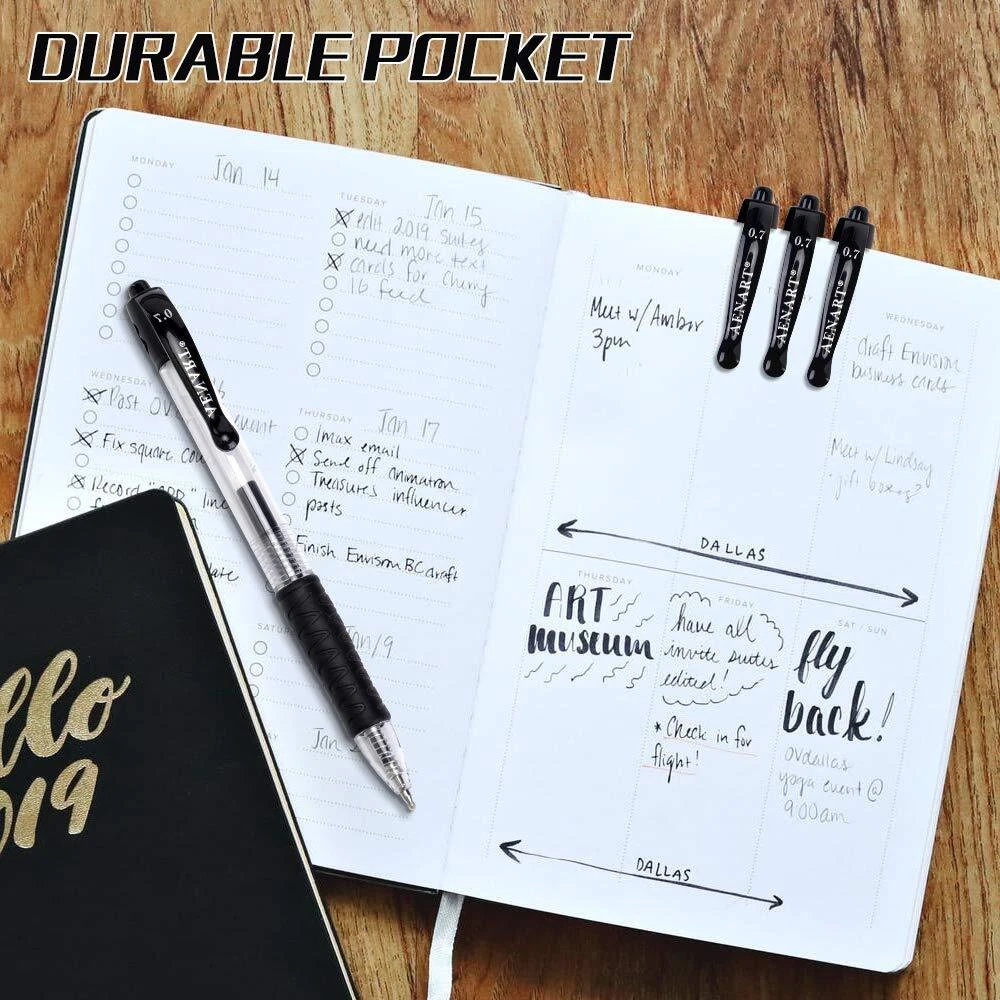 DURABLE POCKET
MONDAY
Jan 14
TUESDAY
Jan 15
edit 2019 suites
need more text
cards for cherry
lb feed
WEDNESDAY
Post OV
Fix square
Record
line
THURSDAY
Jan 17
Imax email
Send off animation
Treasures influencer
posts
Finish Envision BC draft
Jan
0.7
AENART®
ello
019
MONDAY
Meet w/ Amber
3pm
0.7
AENART®
0.7
AENART®
0.7
AENART®
WEDNESDAY
draft Envision
business cards
Meet w/ Lindsay
gift boxes?
DALLAS
THURSDAY
ART
museum
FRIDAY
have all
invite suites
edited!
* Check in for
flight!
SAT / SUN
fly
back!
OVdallas
yoga event @
9:00am
DALLAS